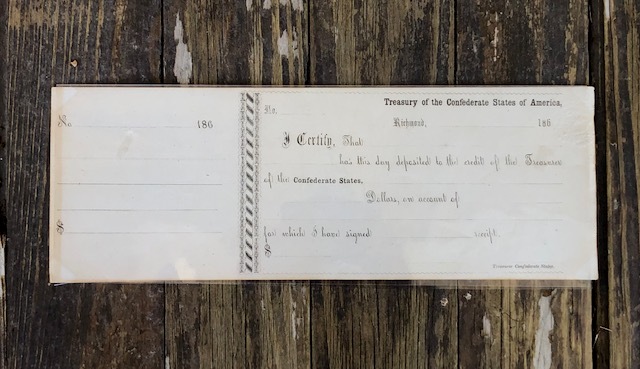 No. 186
$
Treasury of the Confederate States of America,
No.
Richmond, 186
I Certify, That
has this day deposited to the credit of the Treasurer
of the Confederate States,
Dollars, on account of
for which I have signed receipt.
$
Treasurer Confederate States.